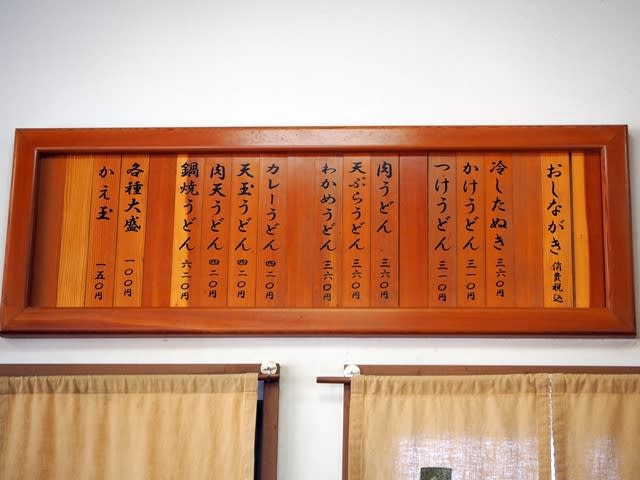 おしながき 消費税込
冷したぬき 三六〇円
かけうどん 三一〇円
つけうどん 三一〇円
肉うどん 三六〇円
天ぷらうどん 三六〇円
わかめうどん 三六〇円
カレーうどん 四二〇円
天玉うどん 四二〇円
肉天うどん 四二〇円
鍋焼うどん 六二〇円
各種大盛 一〇〇円
かえ玉 一五〇円